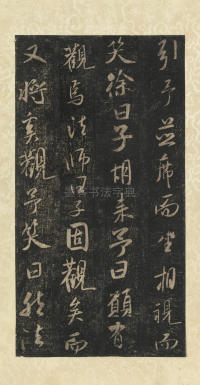 引予並席而坐相視而
笑徐曰子胡来予曰願有
觀焉法師曰子固觀矣而
又將奚觀予笑曰然法